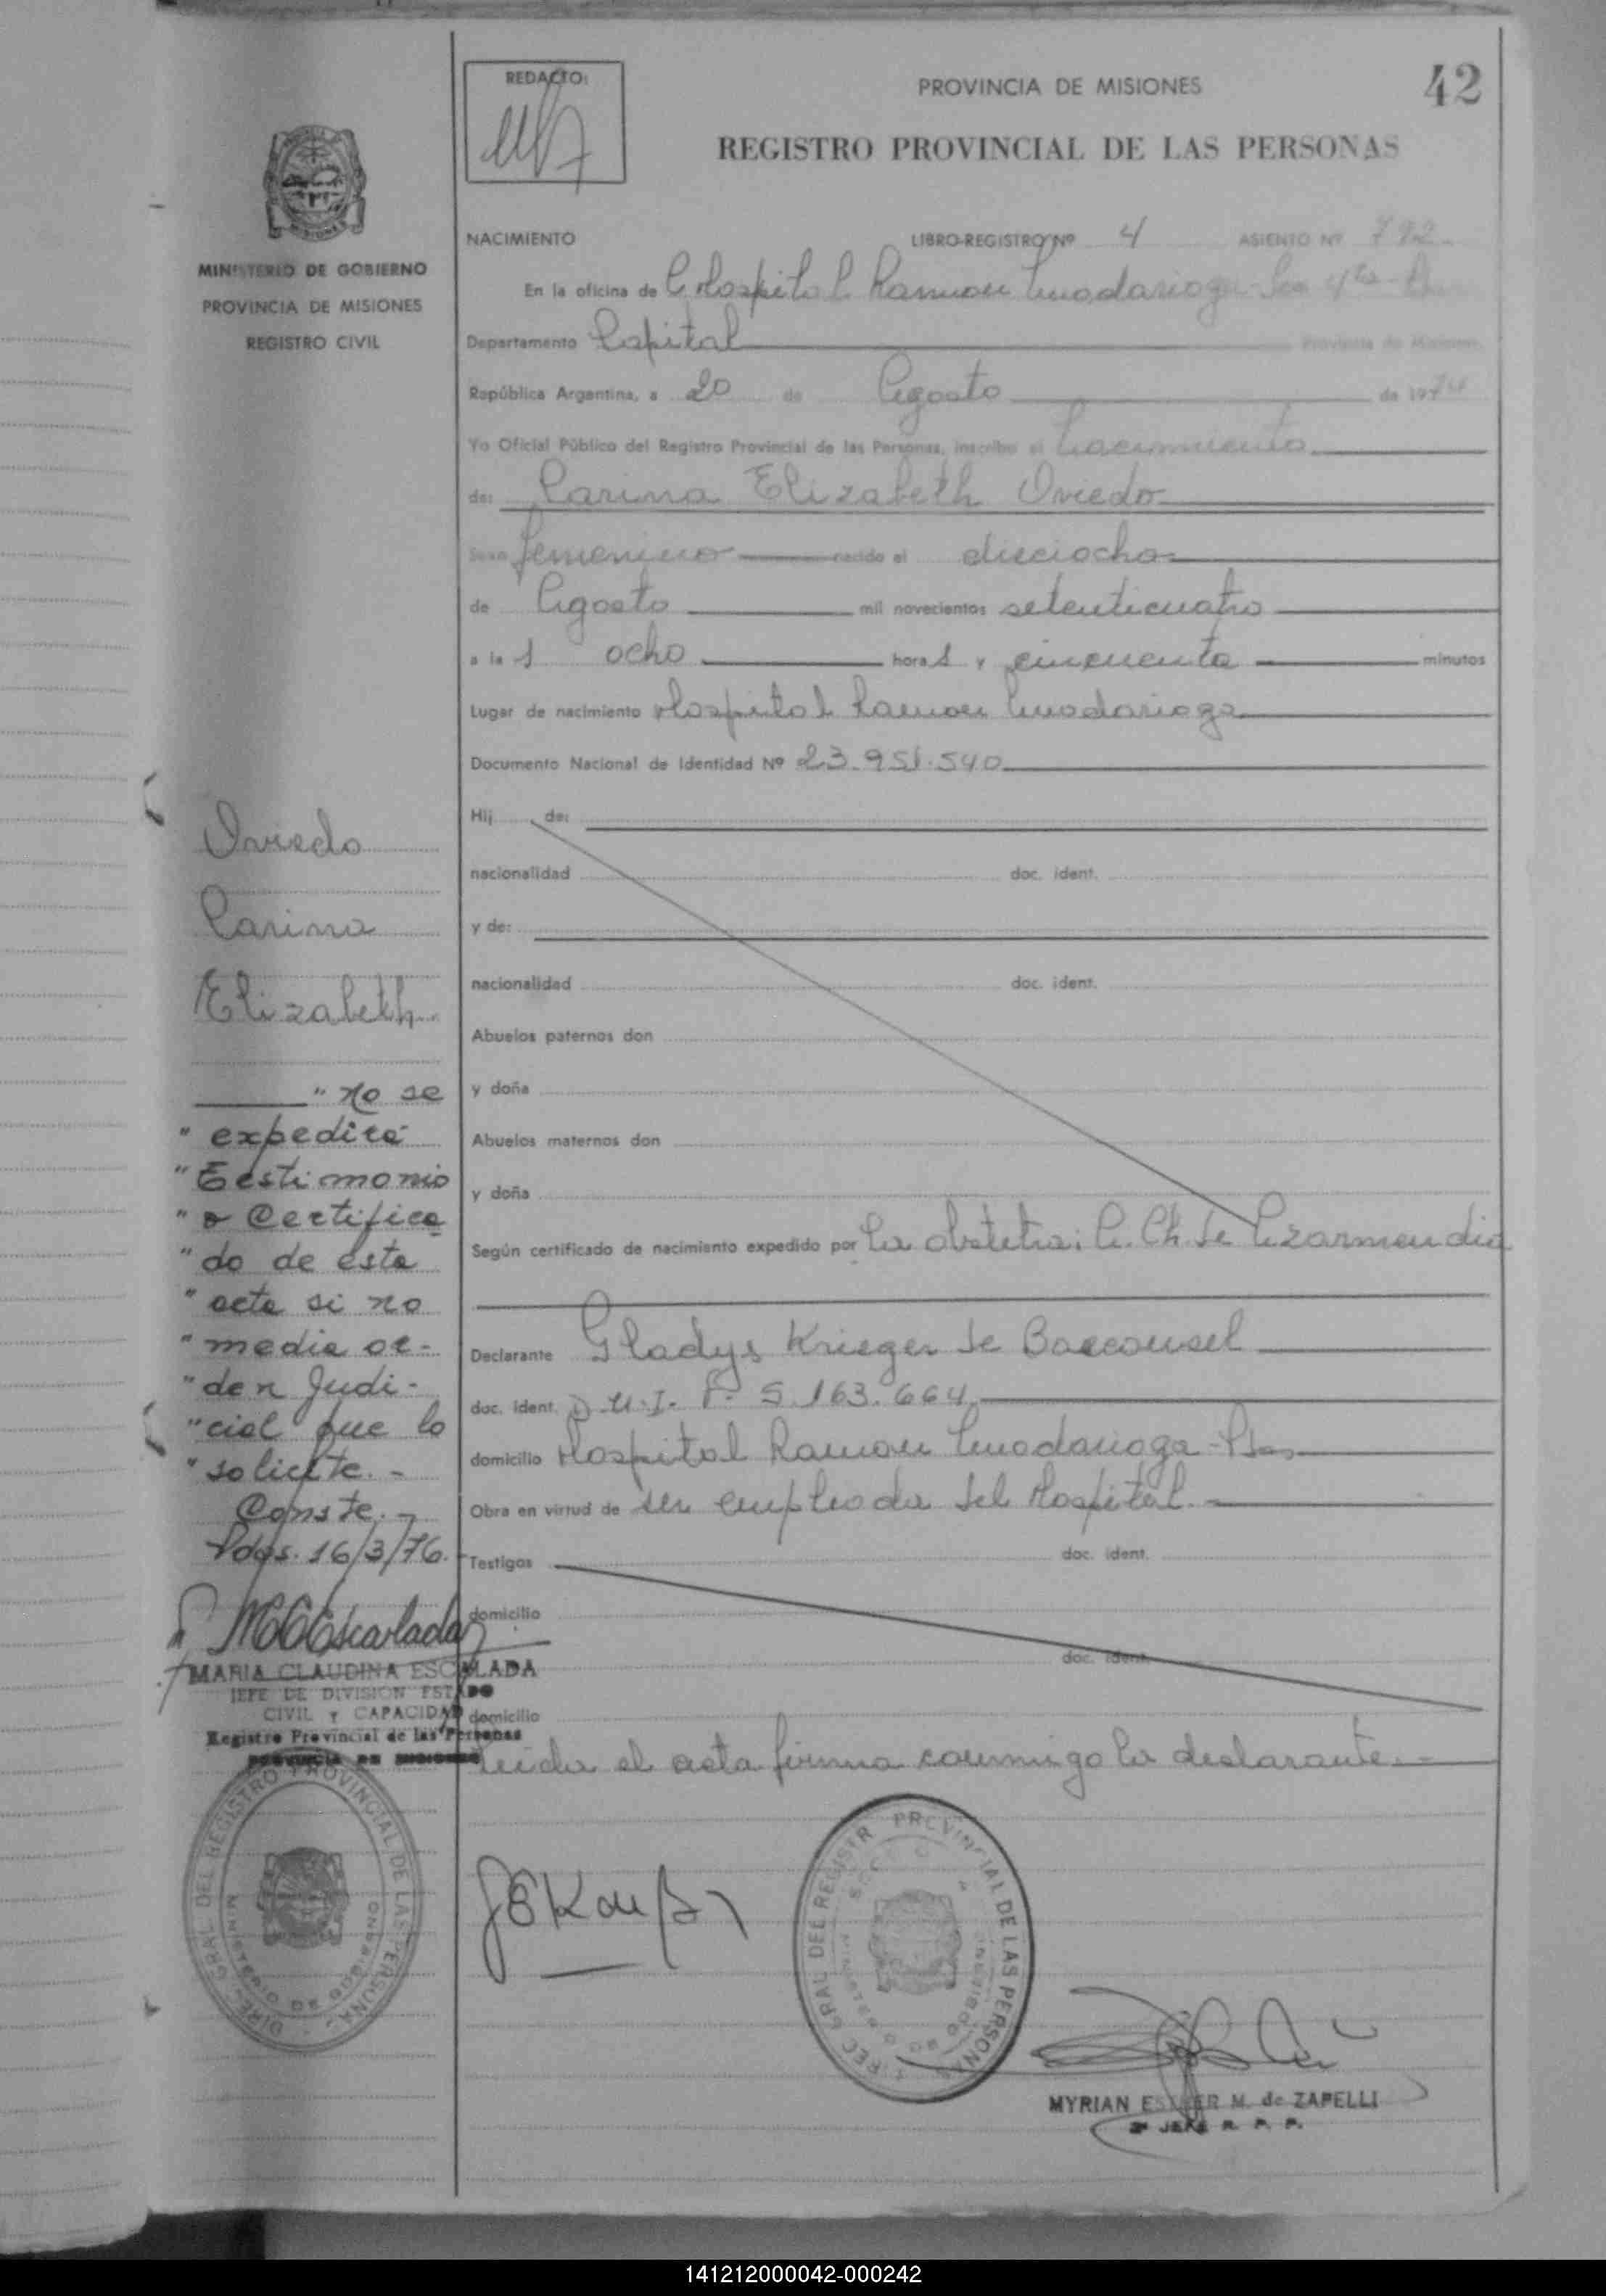 REDACTO:
PROVINCIA DE MISIONES
42
REGISTRO PROVINCIAL DE LAS PERSONAS
MINISTERIO DE GOBIERNO
PROVINCIA DE MISIONES
REGISTRO CIVIL
NACIMIENTO LIBRO-REGISTRO Nº 4 ASIENTO Nº 792
En la oficina de Hospital Ramon Madariaga
Departamento Capital Provincia de Misiones,
República Argentina, a 20 de Agosto de 1974
Yo Oficial Público del Registro Provincial de las Personas, inscribo el Nacimiento
de: Carina Elizabeth Oviedo
Sexo femenino nacido el dieciocho
de Agosto mil novecientos setenticuatro
a la s ocho hora s y cincuenta minutos
Lugar de nacimiento Hospital Ramon Madariaga
Documento Nacional de Identidad Nº 23.951.540
Hij de:
nacionalidad doc. ident.
y de:
nacionalidad doc. ident.
Abuelos paternos don
y doña
Abuelos maternos don
y doña
Según certificado de nacimiento expedido por la obstetra: A. Ch. de Azarmendia
Declarante Gladys Krieger de
doc. ident. D.U.I. F. 5.163.664
domicilio Hospital Ramon Madariaga - Pdas
Obra en virtud de ser empleada del Hospital.-
Testigos doc. ident.
domicilio
doc. ident.
domicilio
Leida el acta firma conmigo la declarante.-
Oviedo
Carina
Elizabeth
" No se
" expedirá
" Testimonio
" o Certifica
" do de esta
" acta si no
" media or-
" den Judi-
" cial que lo
" solicite.-
Conste.-
Pdas. 16/3/76.-
MARIA CLAUDINA ESCALADA
JEFE DE DIVISION ESTADO
CIVIL Y CAPACIDAD
Registro Provincial de las Personas
PROVINCIA DE MISIONES
DIREC. GRAL DEL REGISTRO PROVINCIAL DE LAS PERSONAS
MINISTERIO DE GOBIERNO
DIREC GRAL DEL REGISTR PROVINCIAL DE LAS PERSONAS
MINISTERIO DE GOBIERNO
MYRIAN ESTHER M. de ZAPELLI
2º JEFE R. P. P.
141212000042-000242